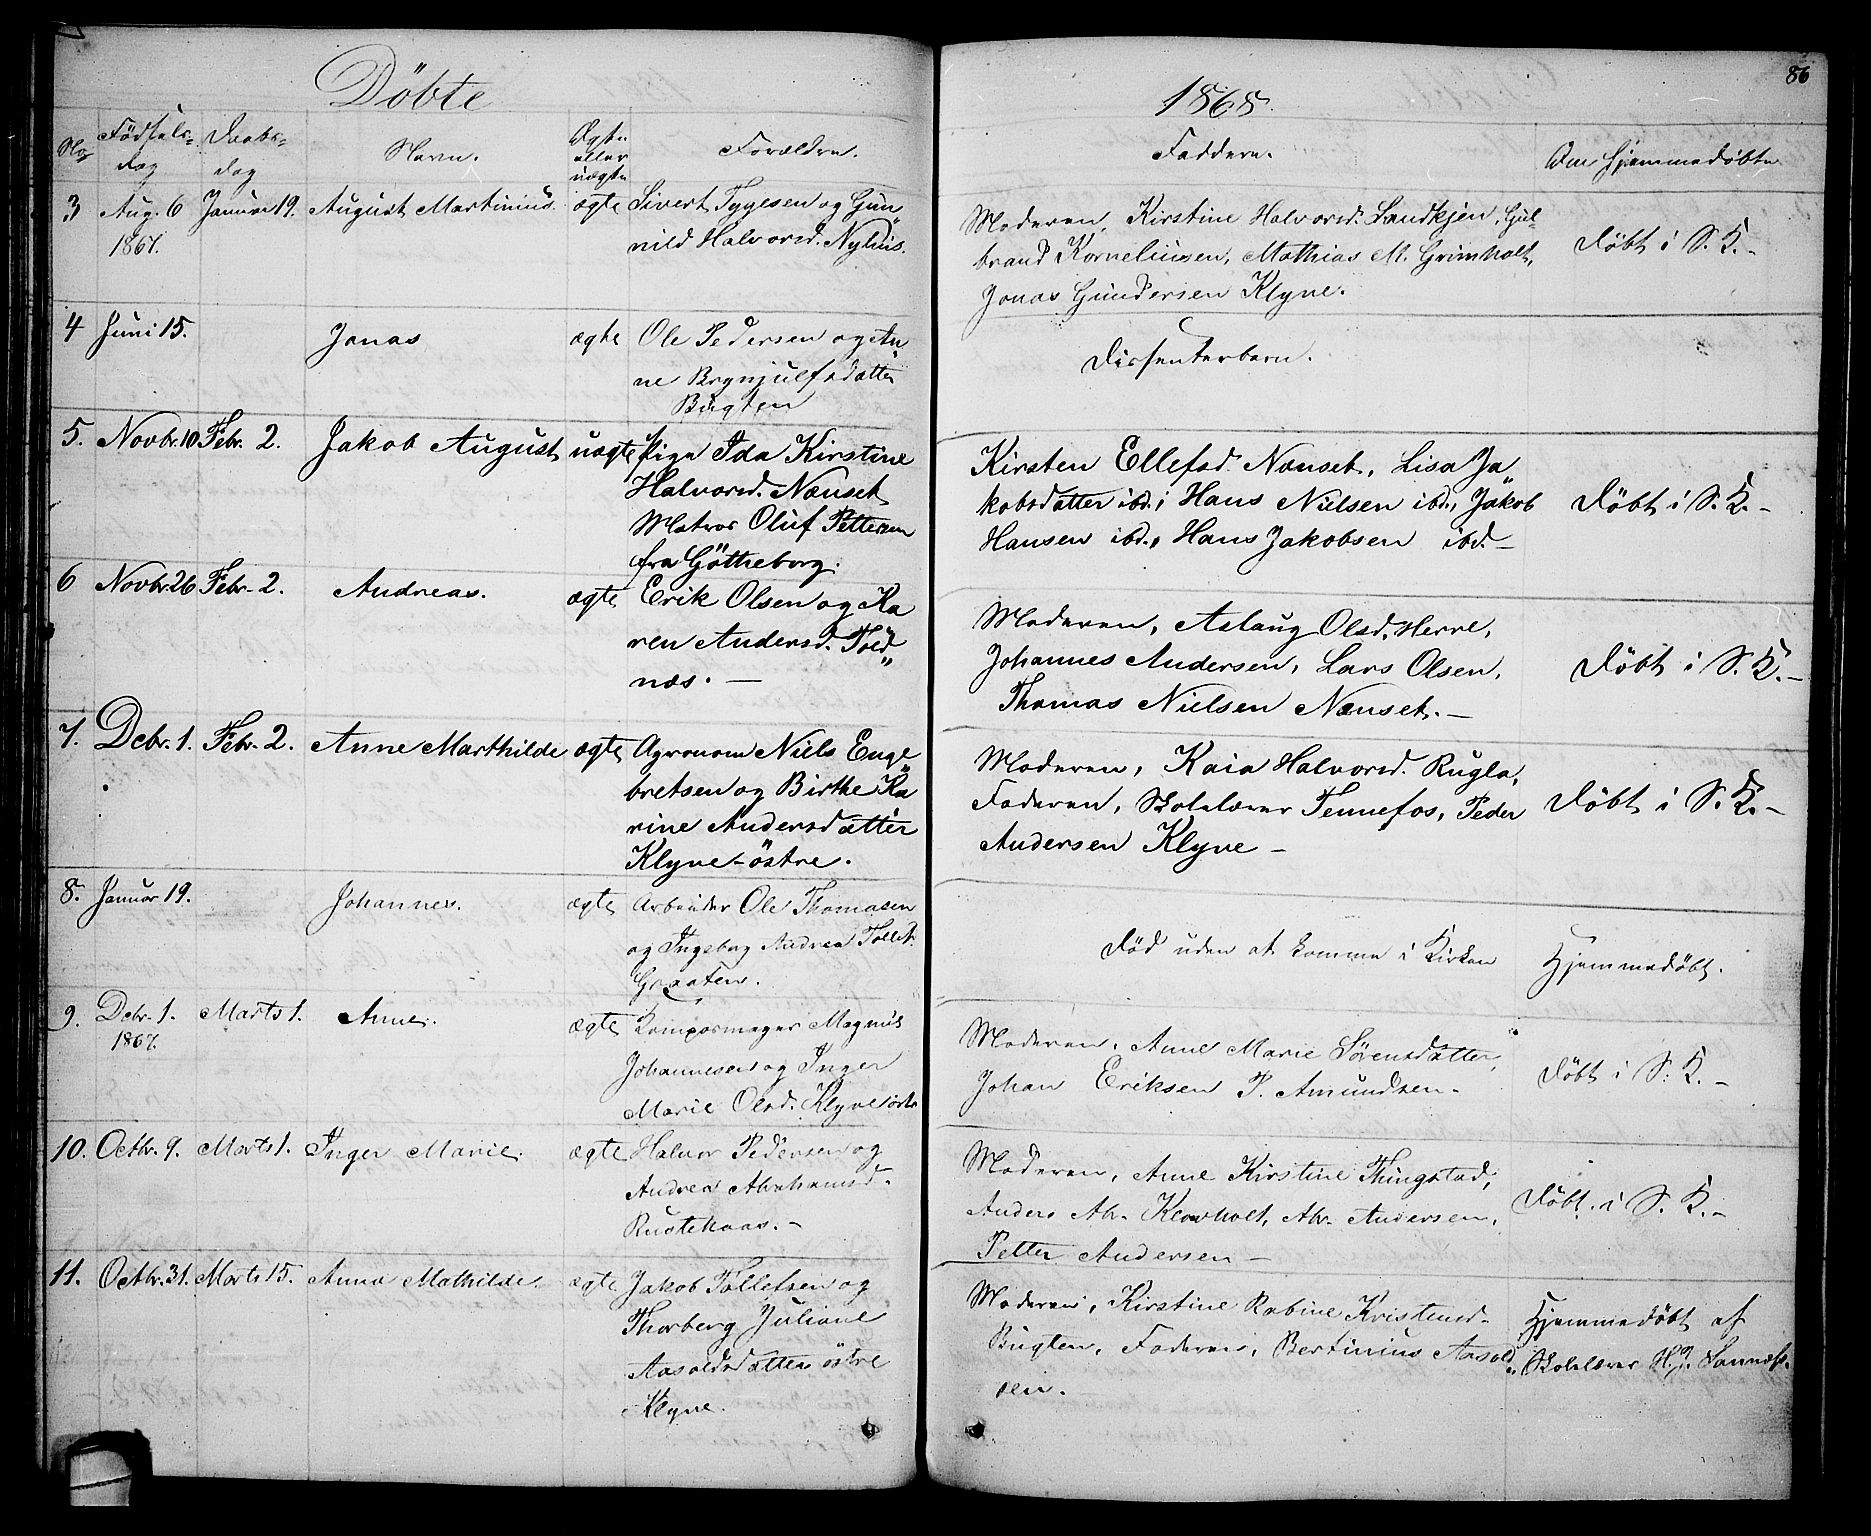 Döbte
1868.
86
No
Födsels-
dag
Daabs-
dag
Navn.
Ægte
eller
uægte
Forældre.
Faddere.
Om hjemmedöbte
3 Aug. 6 Januar 19. August Martinius. ægte Sivert Tygesen og Gun
1867. nild Halvorsd. Nyhus.
Moderen, Kirstine Halvorsd. Sandkjen, Gul-
brand Korneliusen, Mathias M. Grimholt,
Jonas Gundersen Klyve.
Döbt i S. K. -
4 Juni 15. Jonas ægte Ole Pedersen og An
ne Brynjulfsdatter
Bugten
Dissenterbarn.
5. Novbr. 10 Febr. 2. Jakob August uægte Pige Ida Kirstine
Halvorsd. Nænset
Matros Oluf Petterson
fra Gøtheborg.
Kirsten Ellefsd. Nænset, Lisa Ja
kobsdatter ibd., Hans Nielsen ibd., Jakob
Hansen ibd., Hans Jakobsen ibd. -
Döbt i S. K. -
6 Novbr. 26 Febr. 2. Andreas. ægte Erik Olsen og Ka
ren Andersd. Toldnæs. -
Moderen, Aslaug Olsd. Herre,
Johannes Andersen, Lars Olsen,
Thomas Nielsen Nænset. -
Döbt i S. K. -
7. Debr. 1. Febr. 2. Anne Marthilde ægte Agronom Niels Enge
bretsen og Birthe Ka
rine Andersdatter
Klyve-östre.
Moderen, Kaia Halvorsd. Rugla,
Faderen, Skolelærer Tennefos, Peder
Andersen Klyve -
Döbt i S. K. -
8. Januar 19. Johannes. ægte Arbeider Ole Thomasen
og Ingeborg Andrea Tollefs.
Graaten.
Död uden at komme i Kirken
Hjemmedöbt.
9. Debr. 1. Marts 1. Anne. ægte Kompasmager Magnus
1867. Johannesen og Inger
Marie Olsd. Klyve östre
Moderen, Anne Marie Sørensdatter,
Johan Eriksen P. Amundsen.
Döbt i S. K. -
10. Octbr. 9. Marts 1. Inger Marie. ægte Halvor Pedersen og
Andrea Abrahamsd.
Rustekaas. -
Moderen, Anne Kirstine Thingstad,
Anders Ab. Klovholt, Abr. Andersen,
Petter Andersen -
Döbt i S. K. -
11. Octbr. 31. Marts 15. Anna Mathilde ægte Jakob Tollefsen og
Thorberg Juliane
Aasoldsdatter östre
Klyve.
Moderen, Kirstine Rabine Kristensd.
Bugten, Faderen, Bertinius Aasold
sen.
Hjemmedöbt af
Skolelærer H. J.